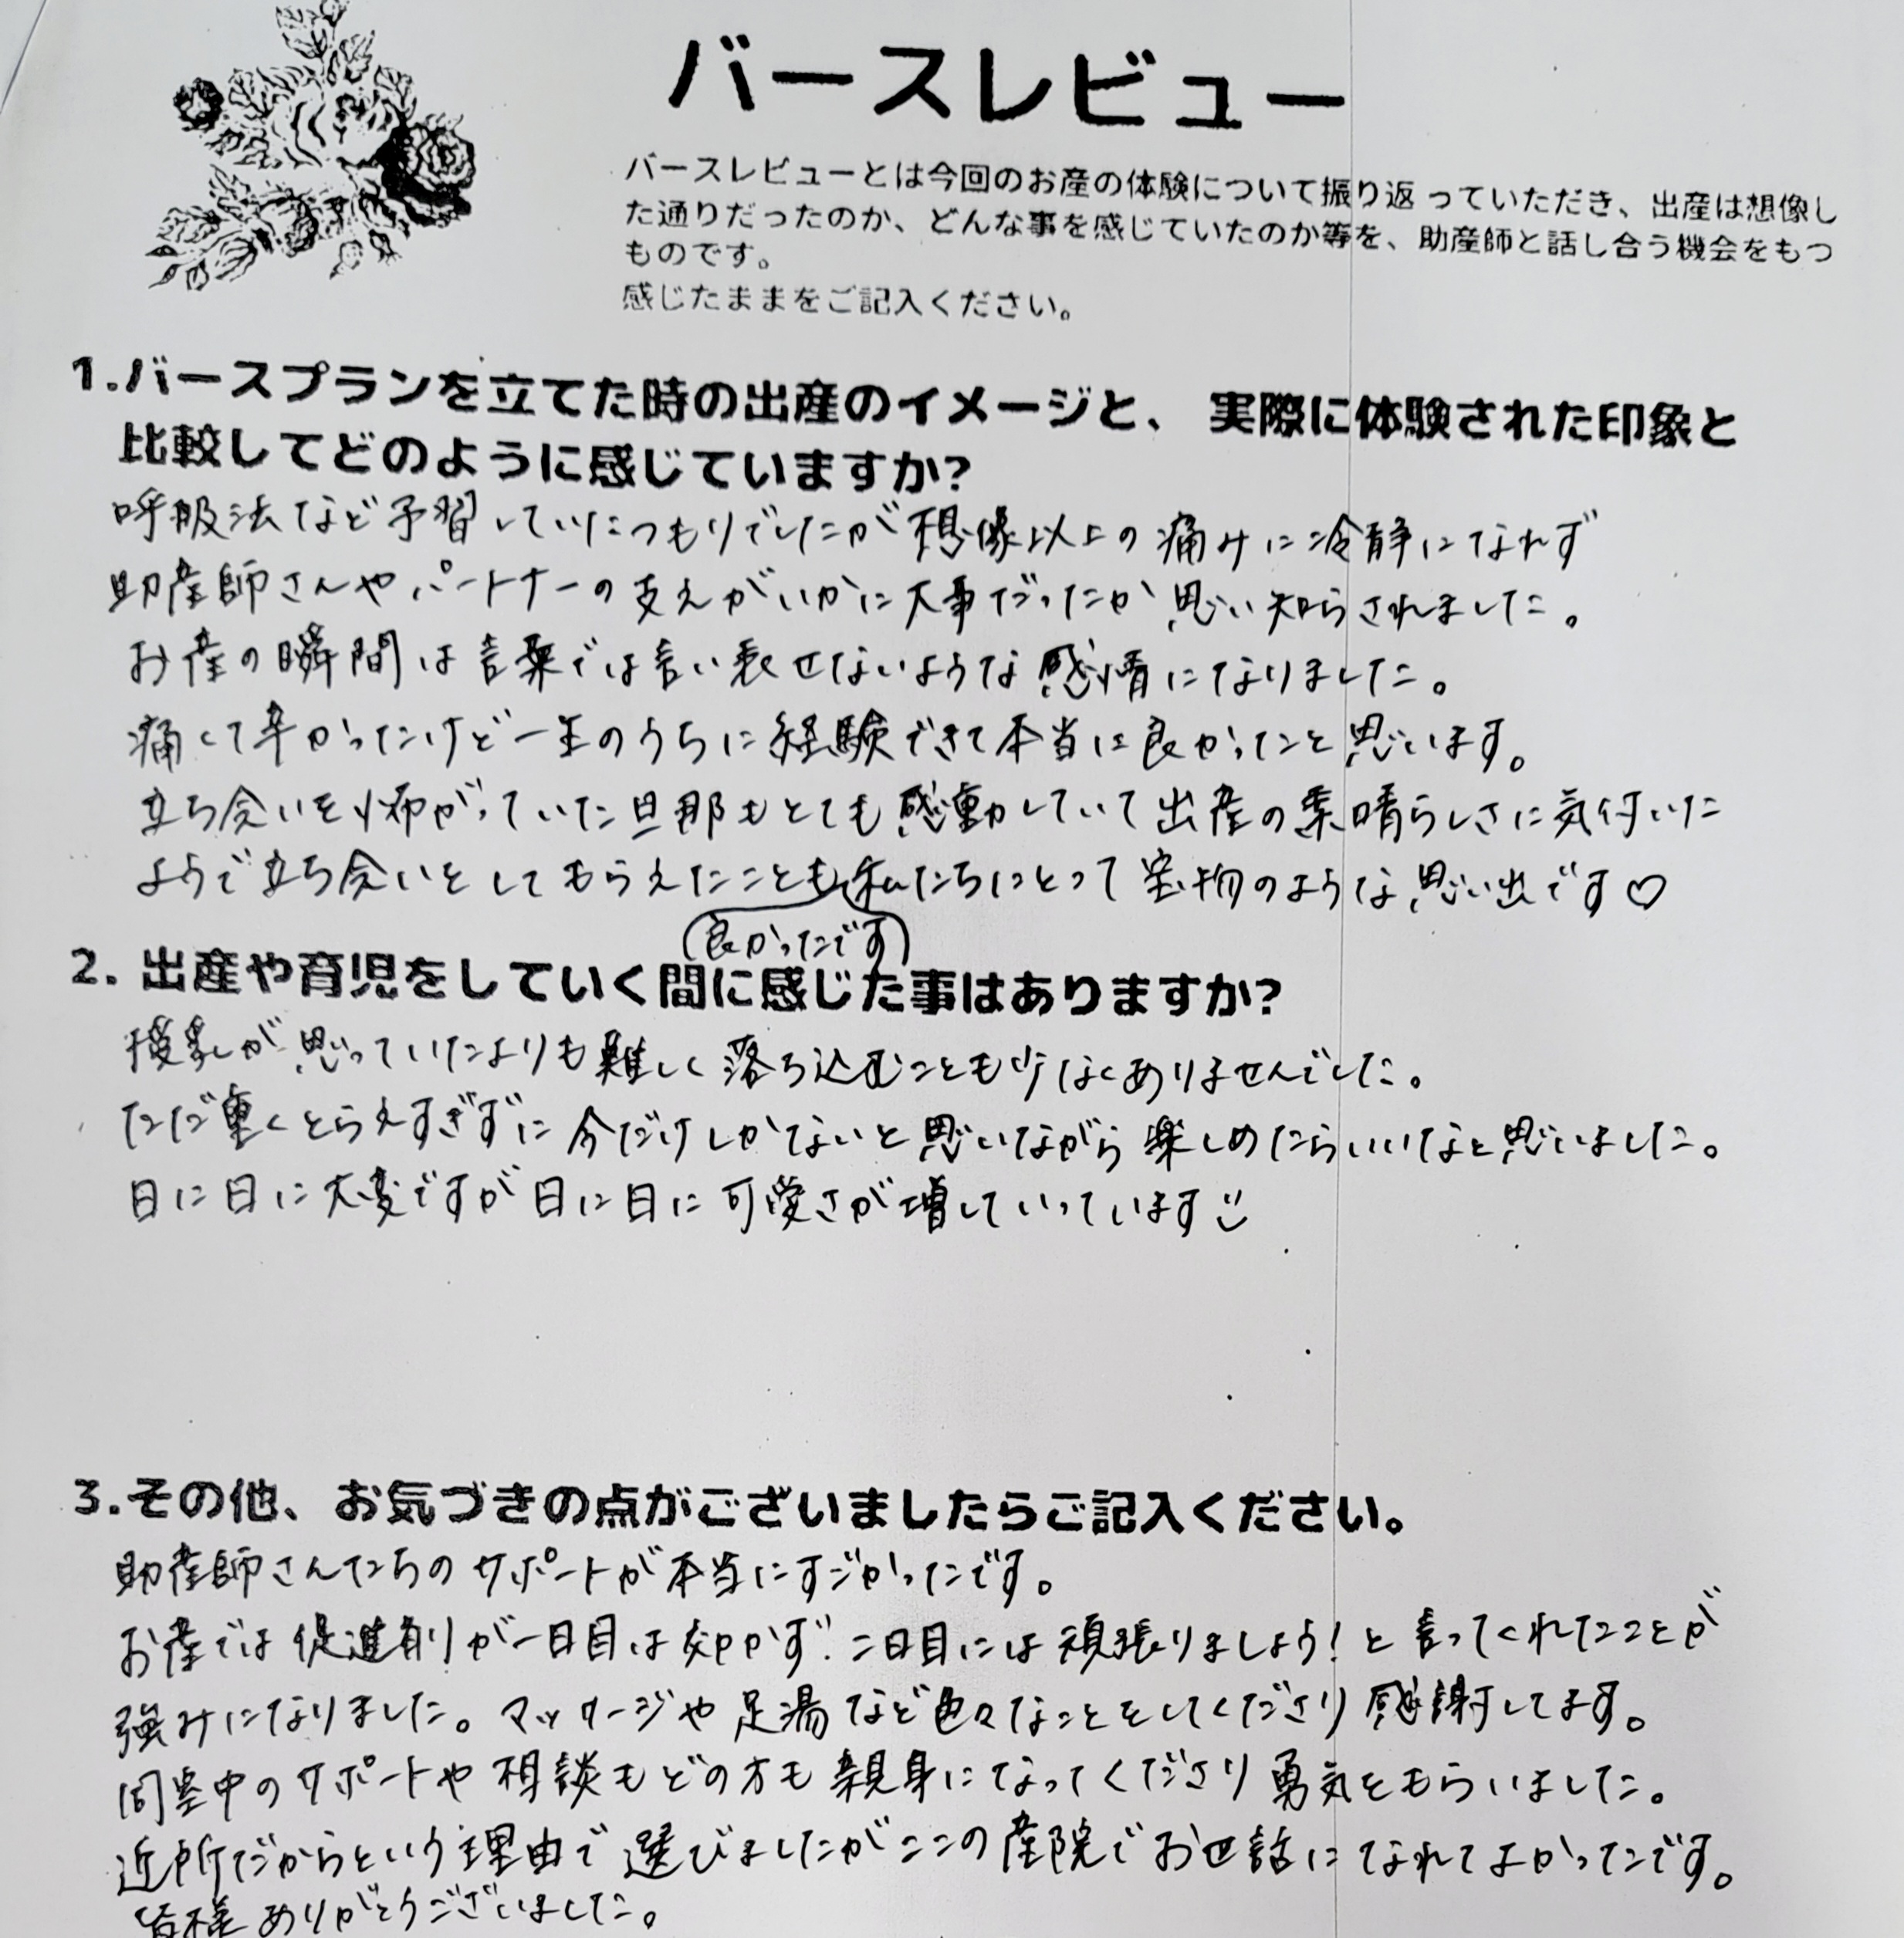 バースレビュー
バースレビューとは今回のお産の体験について振り返 っていただき、出産は想像し
た通りだったのか、どんな事を感じていたのか等を、助産師と話し合う機会をもつ
ものです。
感じたままをご記入ください。
1.バースプランを立てた時の出産のイメージと、 実際に体験された印象と
比較してどのように感じていますか?
呼吸法など予習していたつもりでしたが想像以上の痛みに冷静になれず
助産師さんやパートナーの支えがいかに大事だったか思い知らされました。
お産の瞬間は言葉では言い表せないような感情になりました。
痛くて辛かったけど一生のうちに経験できて本当に良かったと思います。
立ち会いを怖がっていた旦那もとても感動していて出産の素晴らしさに気付いた
ようで立ち会いをしてもらえたことも私たちにとって宝物のような思い出です♡
良かったです
2. 出産や育児をしていく間に感じた事はありますか?
授乳が思っていたよりも難しく落ち込むことも少なくありませんでした。
ただ重くとらえすぎずに今だけしかないと思いながら楽しめたらいいなと思いました。
日に日に大変ですが日に日に可愛さが増していっています
3.その他、お気づきの点がございましたらご記入ください。
助産師さんたちのサポートが本当にすごかったです。
お産では促進剤が一日目は効かず二日目には頑張りましょう!と言ってくれたことが
強みになりました。マッサージや足湯など色々なことをしてくださり感謝してます。
同室中のサポートや相談もどの方も親身になってくださり勇気をもらいました。
近所だからという理由で選びましたがここの産院でお世話になれてよかったです。
皆様ありがとうございました。